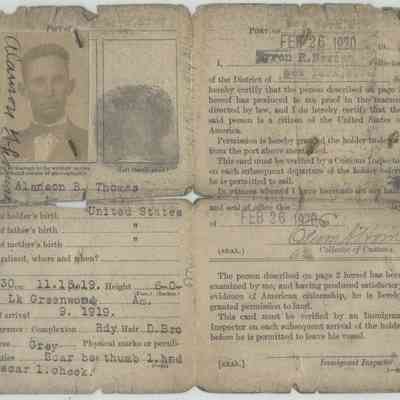 Alanson B. Thomas
United States
holder's birth
father's birth "
mother's birth "
alised, where and when?
30 on 11.15.19. Height 6-0-
Lk Greenwood Am.
arrival 9. 1919.
Complexion Rdy. Hair D.Bro
Grey Physical marks or peculi-
Scar be thumb l.hnd
scar l.cheek.
Port of
FEB 26 1920
I, Collector
of the District of
hereby certify that the person described on page 2
hereof has produced to me proof in the manner
directed by law, and I do hereby certify that the
said person is a citizen of the United States of
America.
Permission is hereby granted the holder to depart
from the port above mentioned.
This card must be verified by a Customs Inspector
on each subsequent departure of the holder before
he is permitted to sail.
In witness whereof I have hereunto set my hand
and seal of office this
FEB 26 1920
of
(SEAL.) Collector of Customs.
The person described on page 2 hereof has been
examined by me, and having produced satisfactory
evidence of American citizenship, he is hereby
granted permission to land.
This card must be verified by an Immigrant
Inspector on each subsequent arrival of the holder
before he is permitted to leave his vessel.
(SEAL.) Immigrant Inspector